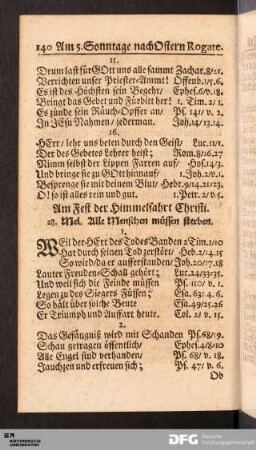 140 Am 5. Sonntage nach Ostern Rogate.
15.
Drum last für Gott uns alle sammt Zachar. 8/21.
Verrichten unser Priester-Ammt! Offenb. 1/5.6.
Es ist des Höchsten sein Begehr/ Ephes. 6/v. 18.
Bringt das Gebet und Fürbitt her! 1. Tim. 2/1.
Es zünde sein Räuch-Opffer an/ Ps. 141/ v. 2.
In JEsu Nahmen/ jederman. Joh. 14/13.14.
16.
HErr/ lehr uns beten durch den Geist/ Luc. 11/1.
Der des Gebetes Lehrer heist; Rom. 8/26.27
Nimm selbst der Lippen Farren auf/ Hos. 14/3.
Und bringe sie zu GOtt hinnauf/ 1. Joh. 2/v. 1.
Besprenge sie mit deinem Blut/ Hebr. 9/14.21/23.
O! so ist alles rein und gut. 1. Petr. 2/v. 5.
Am Fest der Himmelfahrt Christi.
28. Mel. Alle Menschen müssen sterben.
1.
Weil der HErr des Todes Banden 2 Tim. 1/10
Hat durch seinen Tod zerstört/ Heb. 2/14.15
So wird/da er aufferstanden/ Joh. 20/17.18
Lauter Freuden-Schall gehört; Luc. 24/33.35.
Und weil sich die Feinde müssen Ps. 110/ v. 1.
Legen zu des Siegers Füssen; Esa. 63: 4. 6.
So hält über solche Beute Esa. 49/25.26
Er Triumph und Auffart heute. Col. 2/ v. 15.
2.
Das Gefängniß wird mit Schanden Ps. 68/19.
Schau getragen öffentlich/ Ephes. 4/8.10
Alle Engel sind verhanden/ Ps. 68/ v. 18.
Jauchzen und erfreuen sich; Ps. 47/ v. 6.
Ob
DFG Deutsche Forschungsgemeinschaft